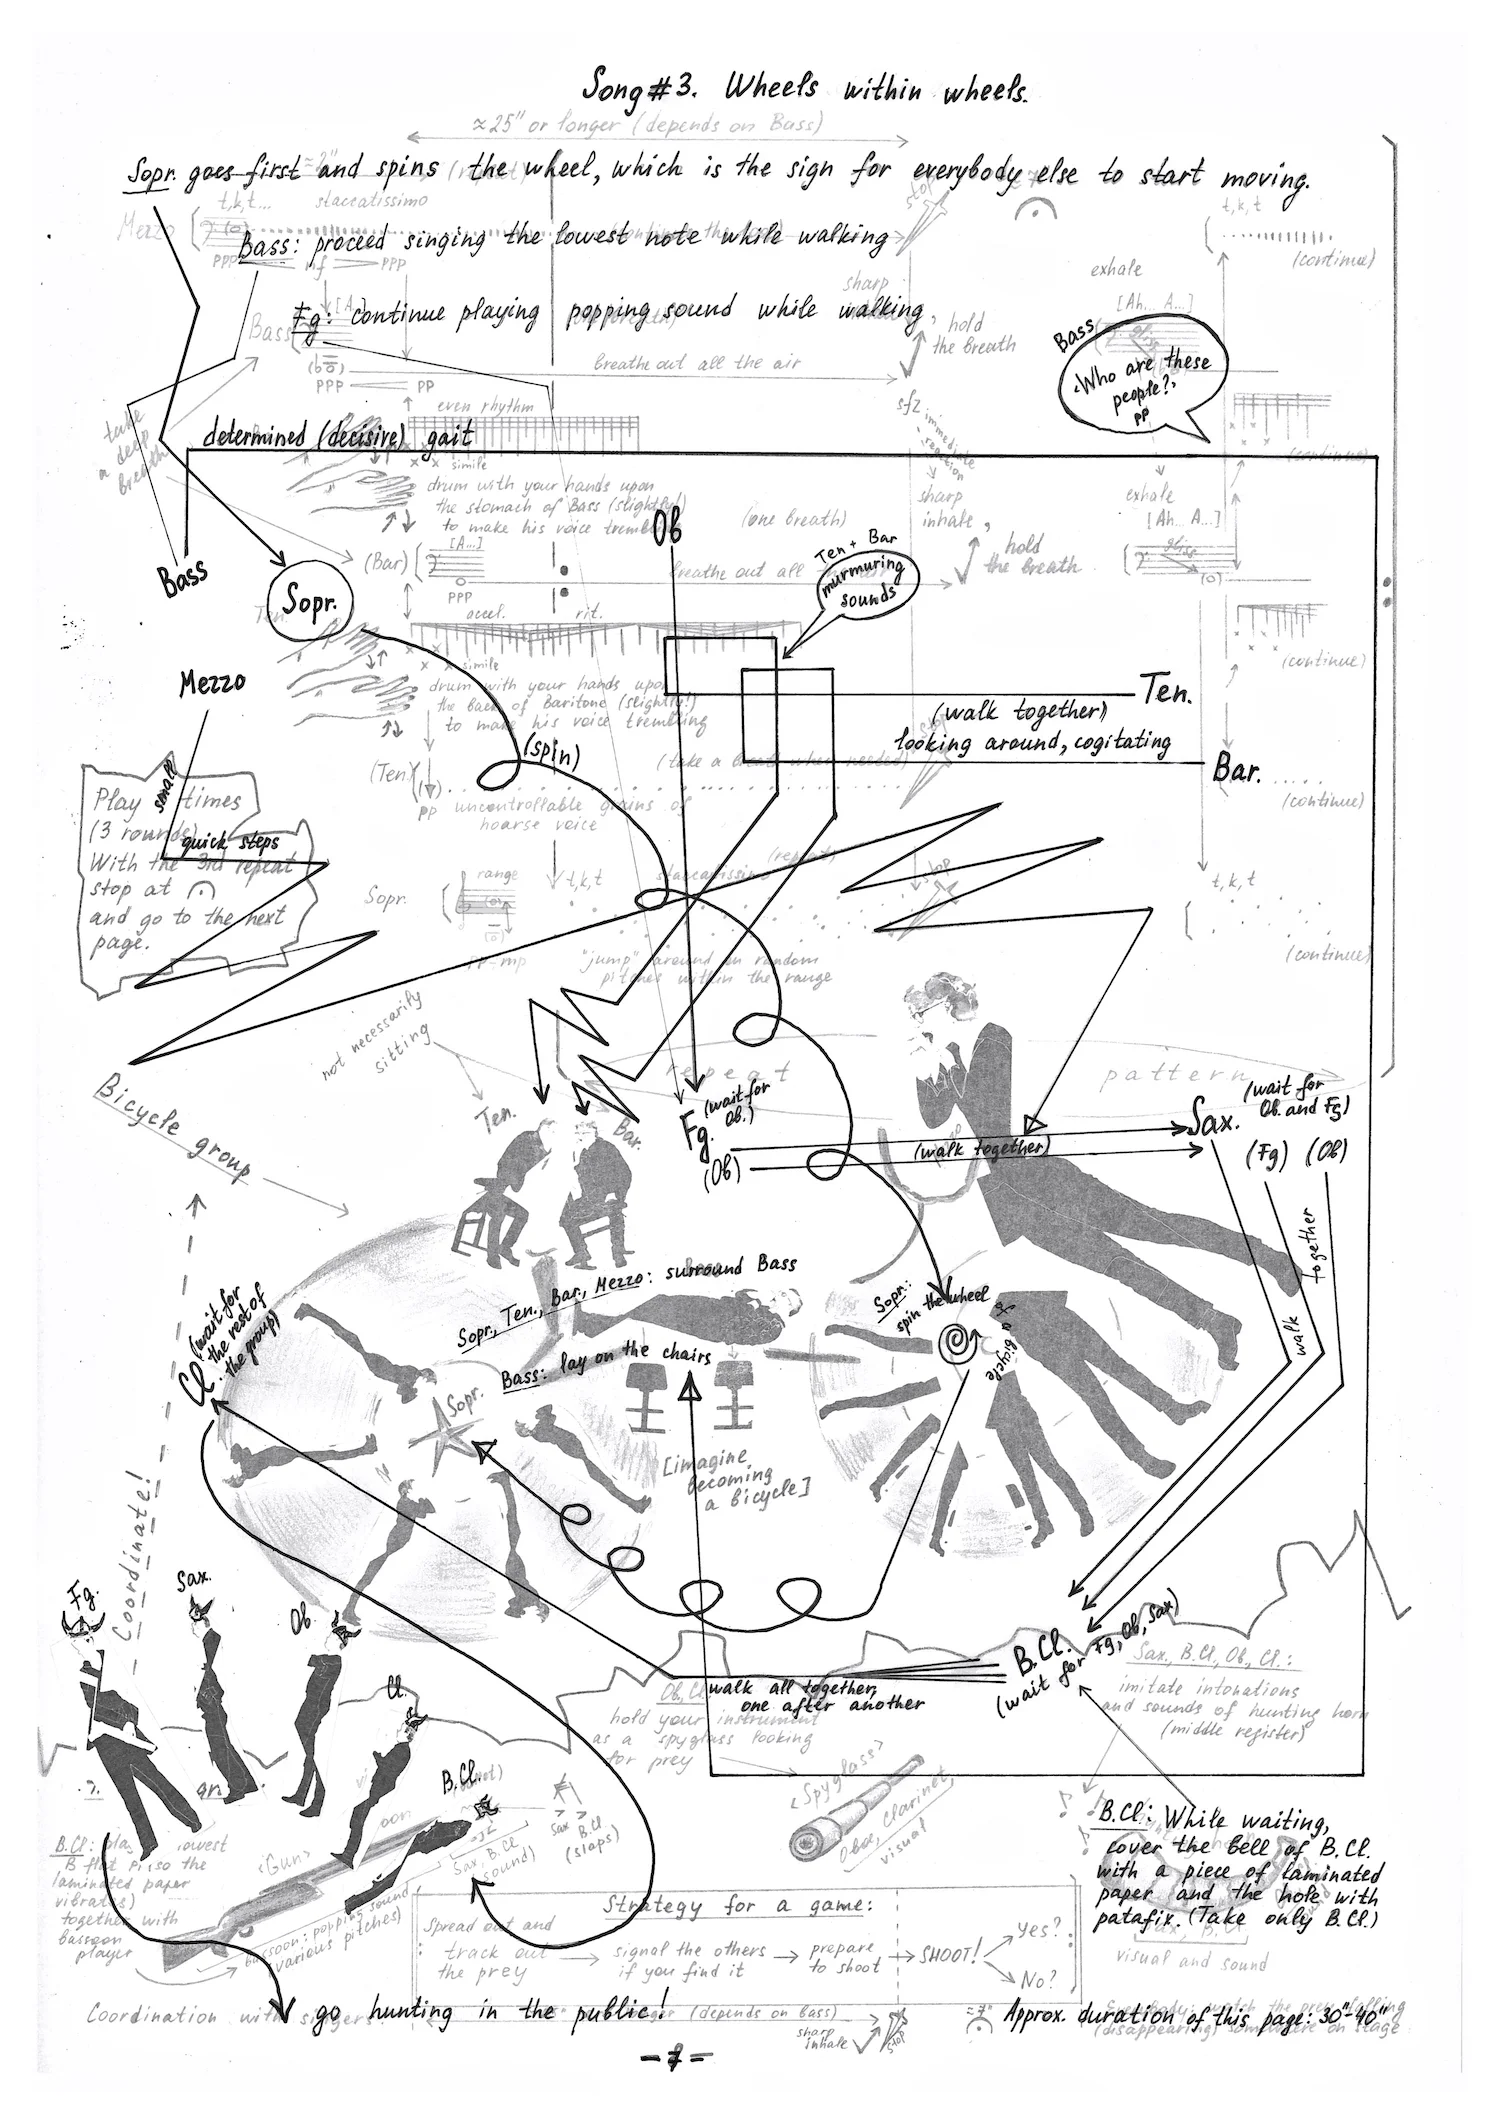 Song #3. Wheels within wheels.
≈25" or longer (depends on Bass)
Sopr. goes first and spins the wheel, which is the sign for everybody else to start moving.
t,k,t... staccatissimo
Mezzo
Bass: proceed singing the lowest note while walking
ppp mf ppp
t,k,t
(continue)
exhale
[Ah... A...]
sharp
Bass
Fg: continue playing popping sound while walking,
hold
the breath
breathe out all the air
ppp pp
Bass
gliss
"Who are these
people?"
pp
take
a deep
breath
even rhythm
sfz
immediate
reaction
determined (decisive) gait
(continue)
simile
drum with your hands upon
the stomach of Bass (slightly!)
to make his voice trembling
Ob
(one breath)
sharp
inhale,
hold
the breath
exhale
[Ah... A...]
gliss
[A...]
(Bar)
ppp
breathe out all
Ten + Bar
murmuring
sounds
Bass
Sopr.
Ten.
accel. rit.
simile
(continue)
Mezzo
drum with your hands upon
the back of Baritone (slightly!)
to make his voice trembling
Ten.
(walk together)
looking around, cogitating
(spin)
(take a breath when needed)
Bar.
(continue)
(Ten)
pp uncontrollable grains of
hoarse voice
small
Play times
(3 rounds)
quick steps
With the 3rd repeat
stop at
and go to the next
page.
(repeat)
range
t,k,t
staccatissimo
Sopr.
pp-mp
"jump" around on random
pitches within the range
t,k,t
(continue)
not necessarily
sitting
Bicycle group
repeat pattern
Ten.
Bar.
Fg.
(wait for
Ob.)
(Ob)
(walk together)
Sax.
(wait for
Ob. and Fg)
(Fg) (Ob)
walk together
Sopr., Ten., Bar., Mezzo: surround Bass
Sopr.:
spin the wheel
of a bicycle
Cl.
(wait for
the rest of
the group)
Bass: lay on the chairs
Sopr.
[imagine
becoming
a bicycle]
Coordinate!
Fg.
Sax.
Ob
Cl.
B.Cl.
B.Cl.
(wait for Fg, Ob, Sax)
walk all together,
one after another
Ob, Cl
hold your instrument
as a spyglass looking
for prey
Sax., B.Cl., Ob., Cl.:
imitate intonations
and sounds of hunting horn
(middle register)
<Spyglass>
Oboe, Clarinet
visual
<Gun>
Sax, B.Cl
(sound)
Sax B.Cl
(slaps)
B.Cl: play lowest
B flat
laminated
paper
vibrates)
together with
bassoon
player
bassoon: popping sound
various pitches)
B.Cl: While waiting,
cover the bell of B.Cl.
with a piece of laminated
paper and the hole with
patafix. (Take only B.Cl.)
visual and sound
Strategy for a game:
Spread out and
track out
the prey
signal the others
if you find it
prepare
to shoot
SHOOT!
Yes?
No?
Coordination with singers
go hunting in the public!
(depends on bass)
sharp
inhale
stop
≈7"
Approx. duration of this page: 30"-40"
(disappearing) somewhere on stage
-7-